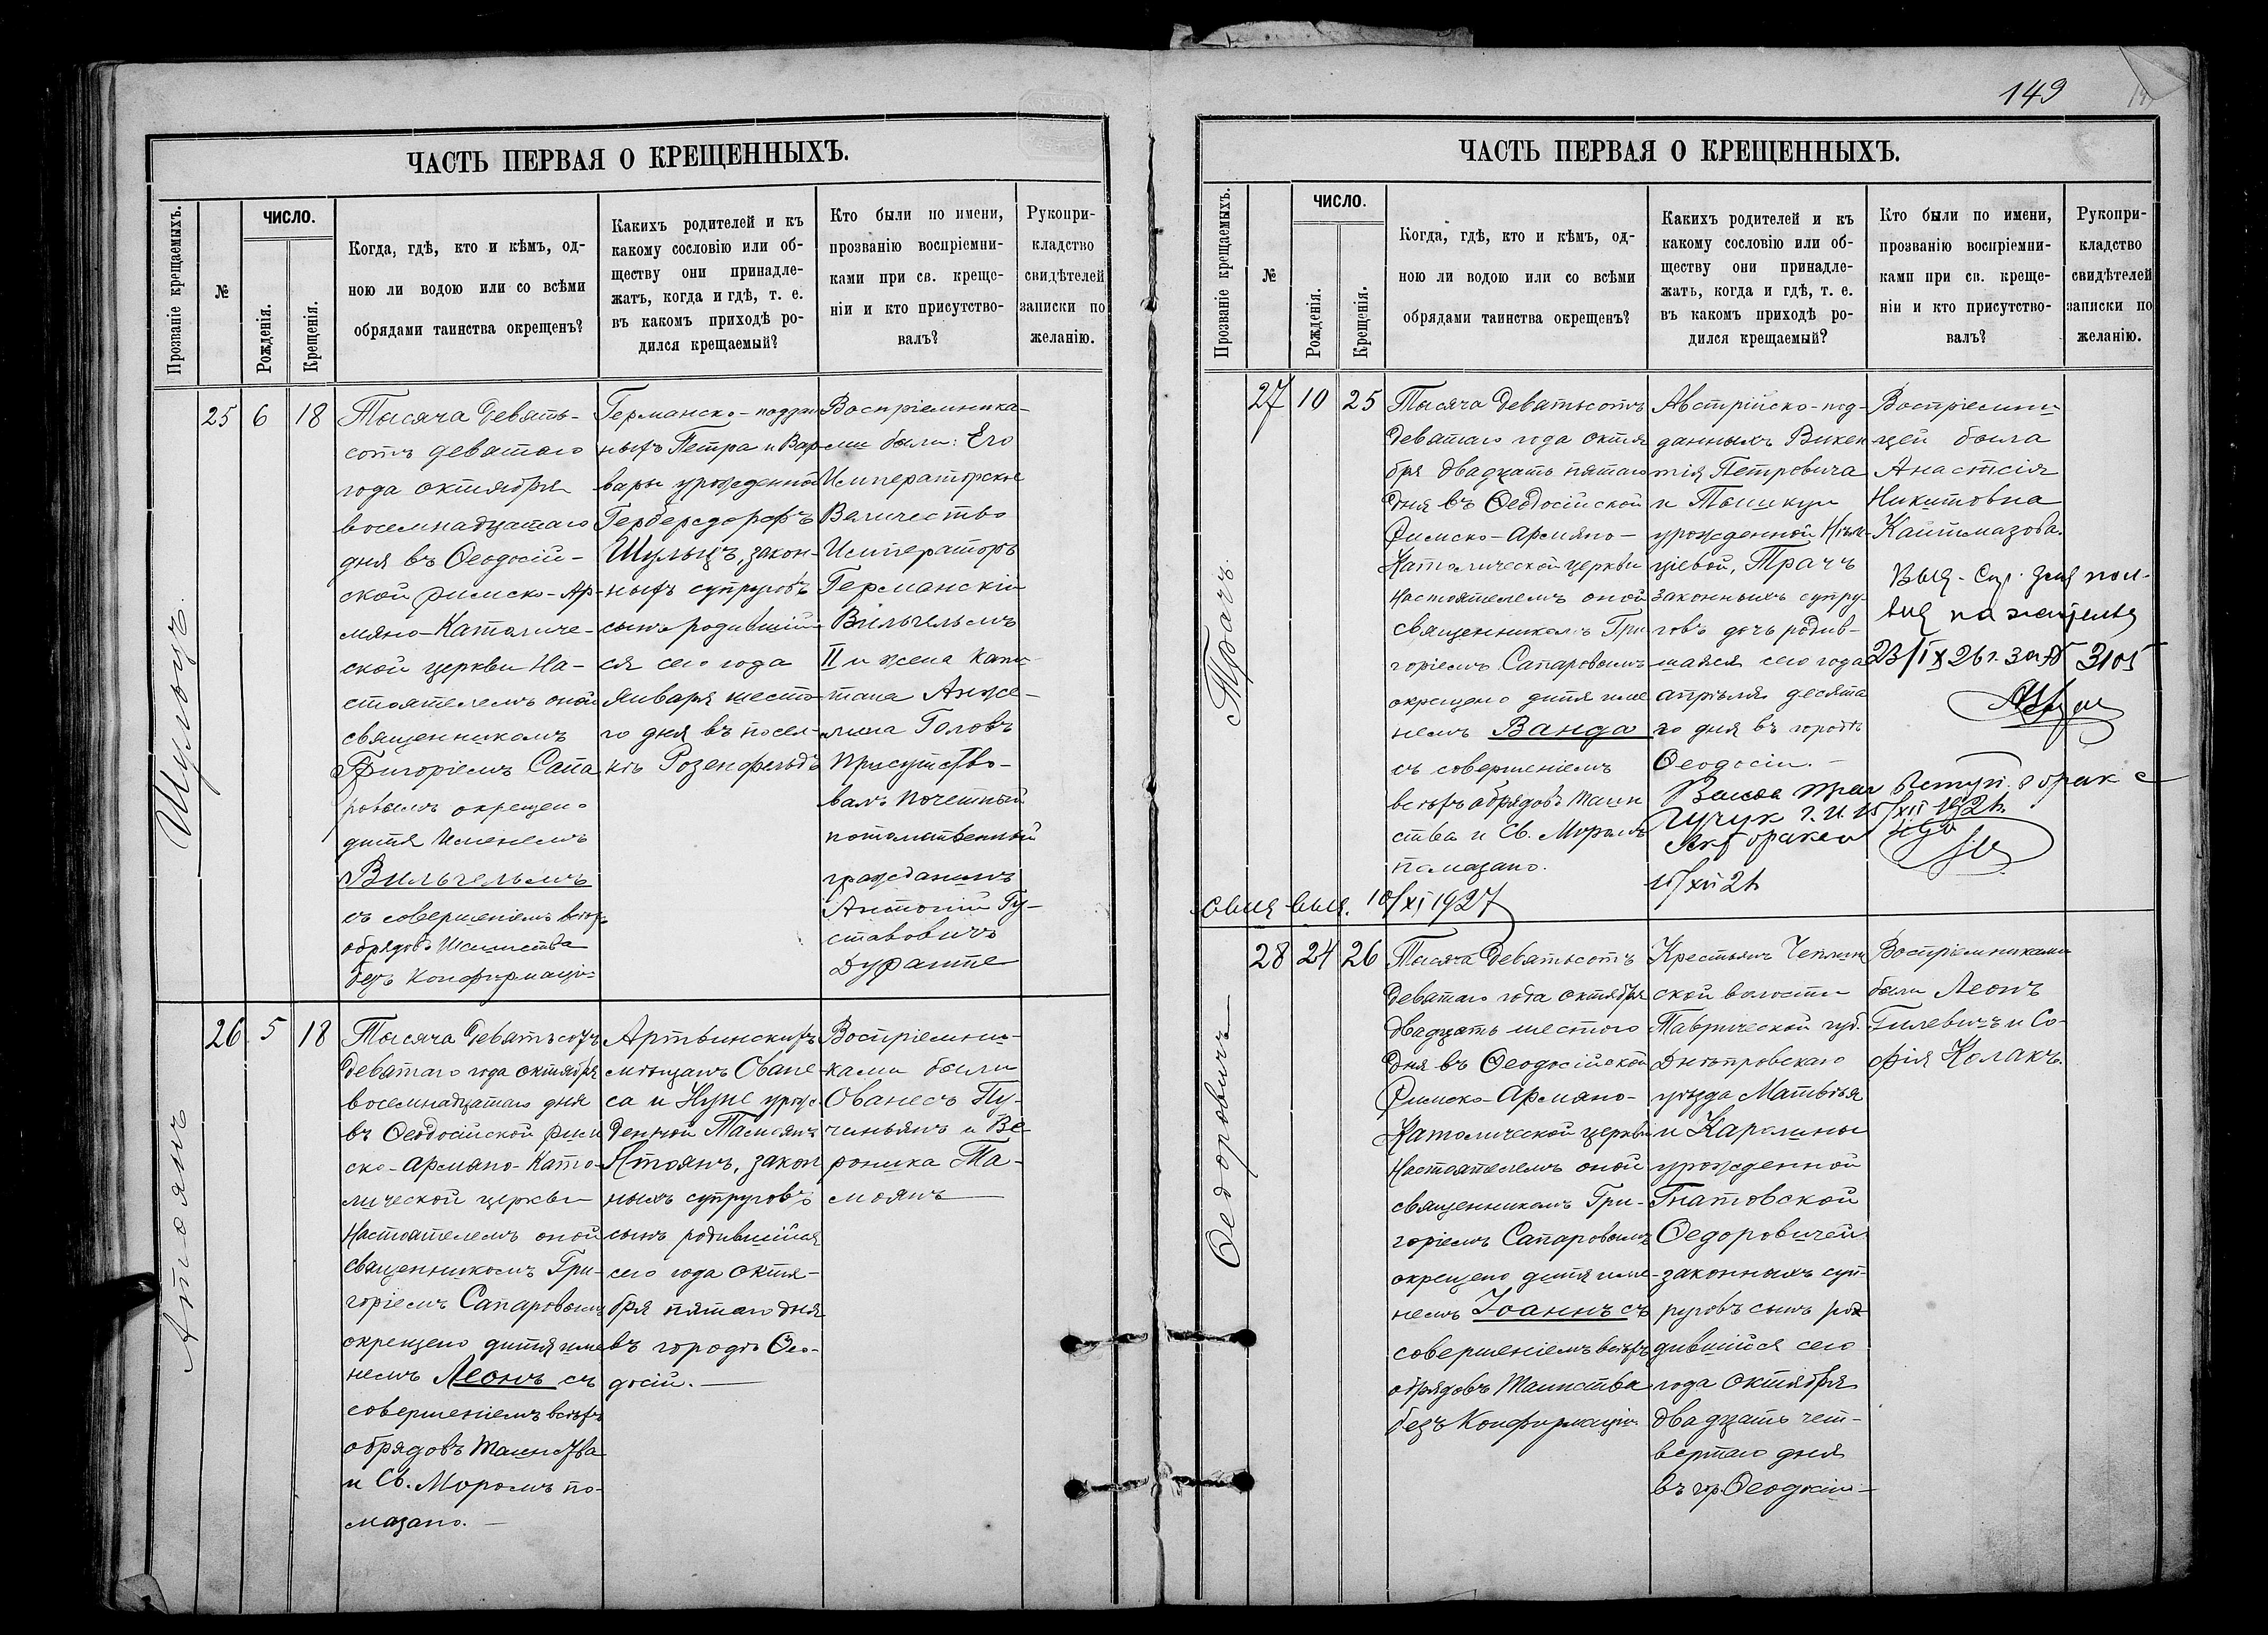 149
ЧАСТЬ ПЕРВАЯ О КРЕЩЕННЫХЪ.
Прозваніе крещаемыхъ.
№
ЧИСЛО.
Рожденія.
Крещенія.
Когда, гдѣ, кто и кѣмъ, од-
ною ли водою или со всѣми
обрядами таинства окрещенъ?
Какихъ родителей и къ
какому сословію или об-
ществу они принадле-
жатъ, когда и гдѣ, т. е.
въ какомъ приходѣ ро-
дился крещаемый?
Кто были по имени,
прозванію воспріемни-
ками при св. креще-
ніи и кто присутство-
валъ?
Рукопри-
кладство
свидѣтелей
записки по
желанію.
Шульцъ.
25
6
18
Тысяча девять-
сотъ девятаго
года октября
восемнадцатаго
дня въ Ѳеодосій-
ской римско-Ар-
мяно-Католиче-
ской церкви На-
стоятелемъ оной
священникомъ
Григоріемъ Сапа
ровымъ окрещено
дитя именемъ
Вильгельмъ
съ совершеніемъ всѣхъ
обрядовъ таинства
безъ Конфирмаціи
Германско-поддан
ныхъ Петра и Вар
вары урожденной
Герберсдорфъ
Шульцъ, закон-
ныхъ супруговъ
сынъ родившій-
ся сего года
Января шесто
го дня въ посел-
кѣ Розенфельдъ
Воспріемника-
ми были: Его
Императорское
Величество
Императоръ
Германскій
Вильгельмъ
II и жена капи
тана Анже-
лина Головъ
Присутство-
валъ почетный
потомственный
гражданинъ
Антоній Гу-
ставовичъ
Дуранте
Атоянъ
26
5
18
Тысяча девятьсотъ
девятаго года октября
восемнадцатаго дня
въ Ѳеодосійской рим
ско-Армяно-Като-
лической церкви
Настоятелемъ оной
священникомъ Гри-
горіемъ Сапаровымъ
окрещено дитя име
немъ Леонъ съ
совершеніемъ всѣхъ
обрядовъ таинства
и Св. Муромъ по-
мазано.
Артвинскихъ
мѣщанъ Ована
са и Нуне урож
денной Тамоянъ
Атоянъ, закон
ныхъ супруговъ
сынъ родившійся
сего года октя-
бря пятаго дня
въ городѣ Ѳео-
досіи.
Воспріемни-
ками были
Ованесъ Пу-
чиньянъ и Ве
роника Та-
моянъ
ЧАСТЬ ПЕРВАЯ О КРЕЩЕННЫХЪ.
Прозваніе крещаемыхъ.
№
ЧИСЛО.
Рожденія.
Крещенія.
Когда, гдѣ, кто и кѣмъ, од-
ною ли водою или со всѣми
обрядами таинства окрещенъ?
Какихъ родителей и къ
какому сословію или об-
ществу они принадле-
жатъ, когда и гдѣ, т. е.
въ какомъ приходѣ ро-
дился крещаемый?
Кто были по имени,
прозванію воспріемни-
ками при св. креще-
ніи и кто присутство-
валъ?
Рукопри-
кладство
свидѣтелей
записки по
желанію.
Трачъ.
27
10
25
Тысяча девятьсотъ
девятаго года октя
бря двадцать пятаго
дня въ Ѳеодосійской
Римско-Армяно-
Католической церкви
Настоятелемъ оной
священникомъ Гри
горіемъ Сапаровымъ
окрещено дитя име
немъ Ванда
съ совершеніемъ
всѣхъ обрядовъ таин
ства и Св. Муромъ
помазано.
Австрійско-под-
данныхъ Викен
тія Петровича
и
урожденной Нѣм-
цевой, Трачъ
законныхъ супру-
говъ дочь родив-
шаяся сего года
апрѣля десята
го дня въ городѣ
Ѳеодосіи.
Воспріемни
цей была
Анастасія
Никитовна
Кайтмазова.
23/IX 26 г. за № 3105
Ванда Трач вступ. в брак с
15/XII 192
Акт брака
15/XII 2
выд. 10/XI 1927
Ѳедоровичъ
28
24
26
Тысяча девятьсотъ
девятаго года октября
двадцать шестого
дня въ Ѳеодосійской
Римско-Армяно-
Католической церкви
Настоятелемъ оной
священникомъ Гри-
горіемъ Сапаровымъ
окрещено дитя име-
немъ Іоаннъ съ
совершеніемъ всѣхъ
обрядовъ таинства
безъ Конфирмаціи
Крестьянъ
ской волости
Таврической губ.
Днѣпровскаго
уѣзда Матвѣя
и Каролины
урожденной
Гнатовской
Ѳедоровичей
законныхъ суп-
руговъ сынъ ро
дившійся сего
года октября
двадцать чет-
вертаго дня
въ гор. Ѳеодосіи
Воспріемниками
были Леонъ
Гилевичъ и Со-
фія Колакъ.